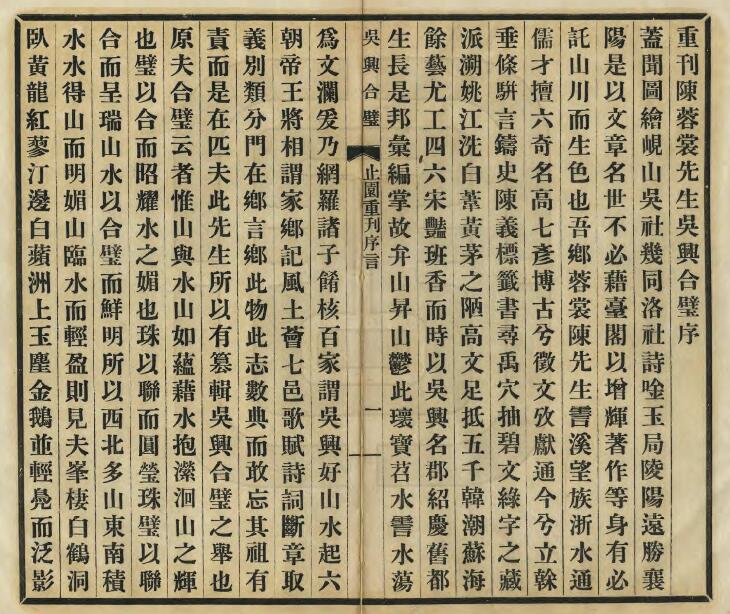 重刊陳蓉裳先生吳興合璧序
蓋聞圖繪峴山吳社幾同洛社詩唫玉局陵陽遠勝襄
陽是以文章名世不必藉臺閣以增輝著作等身有必
託山川而生色也吾鄉蓉裳陳先生霅溪望族浙水通
儒才擅六奇名高七彥博古兮徵文攷獻通今兮立榦
垂條騈言鑄史陳義標籤書尋禹穴抽碧文綠字之藏
派溯姚江洗白葦黃茅之陋高文足抵五千韓潮蘇海
餘藝尤工四六宋豔班香而時以吳興名郡紹慶舊都
生長是邦彙編掌故弁山昇山鬱此瓌寶苕水霅水蕩
吳興合璧
止園重刊序言
一
爲文瀾爰乃網羅諸子餚核百家謂吳興好山水起六
朝帝王將相謂家鄉記風土薈七邑歌賦詩詞斷章取
義別類分門在鄉言鄉此物此志數典而敢忘其祖有
責而是在匹夫此先生所以有篡輯吳興合璧之舉也
原夫合璧云者惟山與水山如蘊藉水抱瀠洄山之輝
也璧以合而昭耀水之媚也珠以聯而圓瑩珠璧以聯
合而呈瑞山水以合璧而鮮明所以西北多山東南積
水水得山而明媚山臨水而輕盈則見夫峯棲白鶴洞
臥黃龍紅蓼汀邊白蘋洲上玉塵金鵝並輕鳧而泛影